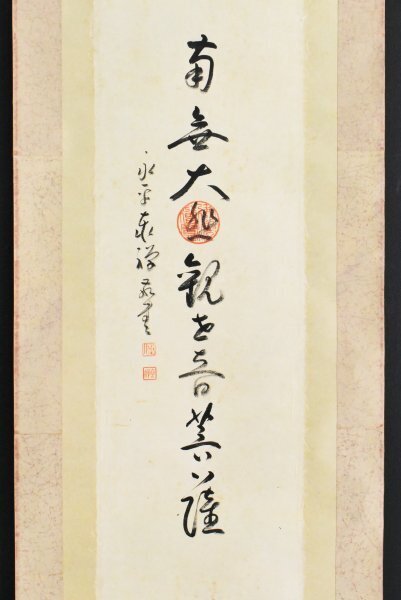 南無大悲観世音菩薩
永平泰禅敬書